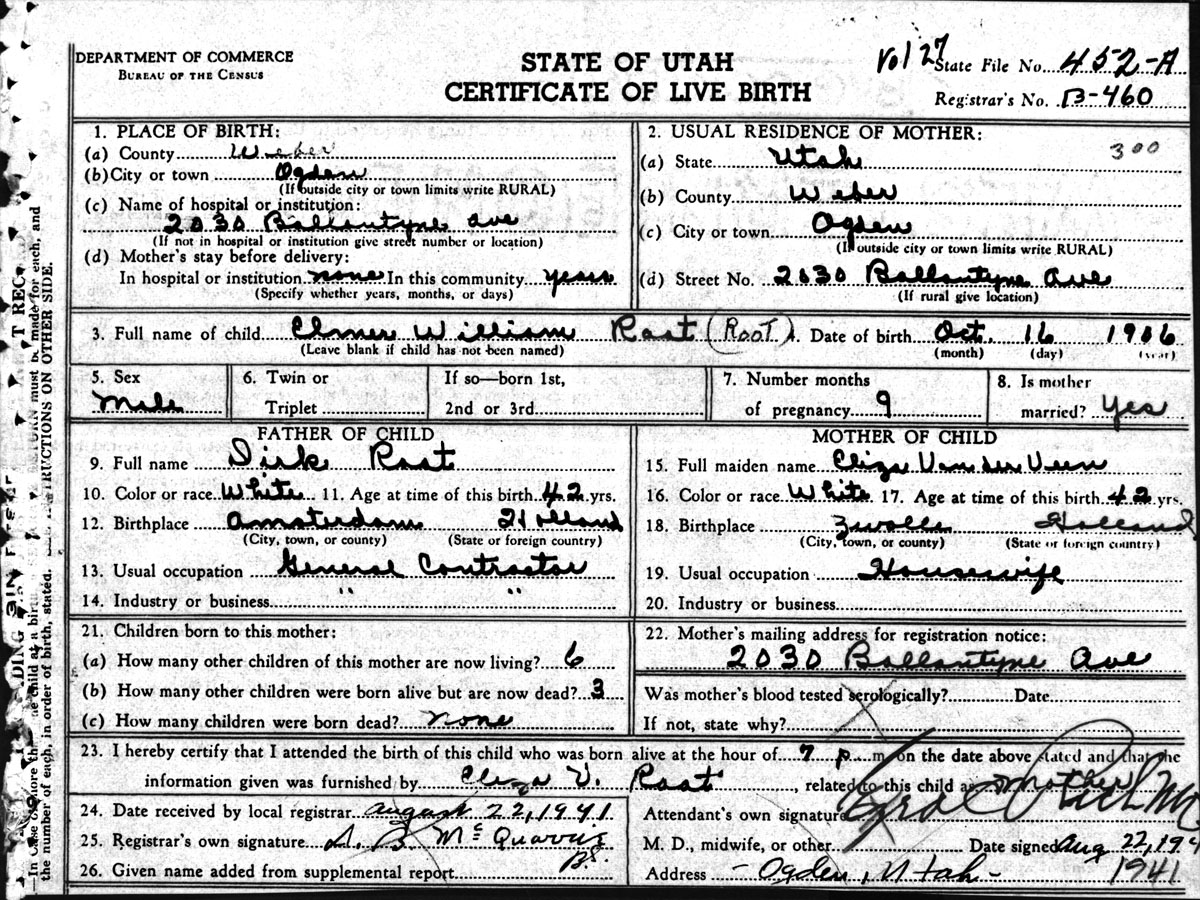 DEPARTMENT OF COMMERCE
BUREAU OF THE CENSUS
STATE OF UTAH
CERTIFICATE OF LIVE BIRTH
Vol 27
State File No. 452-A
Registrar's No. B-460
1. PLACE OF BIRTH:
(a) County Weber
(b) City or town Ogden
(If outside city or town limits write RURAL)
(c) Name of hospital or institution:
2030 Ballantyne Ave
(If not in hospital or institution give street number or location)
(d) Mother's stay before delivery:
In hospital or institution none In this community years
(Specify whether years, months, or days)
2. USUAL RESIDENCE OF MOTHER:
300
(a) State Utah
(b) County Weber
(c) City or town Ogden
(If outside city or town limits write RURAL)
(d) Street No. 2030 Ballantyne Ave
(If rural give location)
3. Full name of child Elmer William Root (Root) 4. Date of birth Oct. 16 1906
(Leave blank if child has not been named) (month) (day) (year)
5. Sex Male
6. Twin or Triplet
If so—born 1st, 2nd or 3rd
7. Number months of pregnancy 9
8. Is mother married? Yes
FATHER OF CHILD
9. Full name Dirk Root
10. Color or race White 11. Age at time of this birth 42 yrs.
12. Birthplace Amsterdam Holland
(City, town, or county) (State or foreign country)
13. Usual occupation General Contractor
14. Industry or business " "
MOTHER OF CHILD
15. Full maiden name Eliza Van der Veen
16. Color or race White 17. Age at time of this birth 42 yrs.
18. Birthplace Zwolle Holland
(City, town, or county) (State or foreign country)
19. Usual occupation Housewife
20. Industry or business
21. Children born to this mother:
(a) How many other children of this mother are now living? 6
(b) How many other children were born alive but are now dead? 3
(c) How many children were born dead? none
22. Mother's mailing address for registration notice:
2030 Ballantyne Ave
Was mother's blood tested serologically? Date
If not, state why?
23. I hereby certify that I attended the birth of this child who was born alive at the hour of 7 p. m. on the date above stated and that the
information given was furnished by Eliza V. Root, related to this child as mother
24. Date received by local registrar August 22, 1941
25. Registrar's own signature
26. Given name added from supplemental report
Attendant's own signature
M. D., midwife, or other Date signed Aug 22, 194
Address - Ogden, Utah - 1941
must be made for each, and
the number of each, in order of birth, stated.
INSTRUCTIONS ON OTHER SIDE.